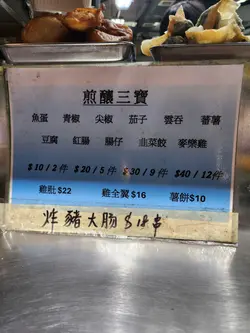 煎釀三寶
魚蛋 青椒 尖椒 茄子 雲吞 蕃薯
豆腐 紅腸 腸仔 韭菜餃 麥樂雞
$10/2件 $20/5件 $30/9件 $40/12件
雞肶$22 雞全翼$16 薯餅$10
炸豬大肠$18串